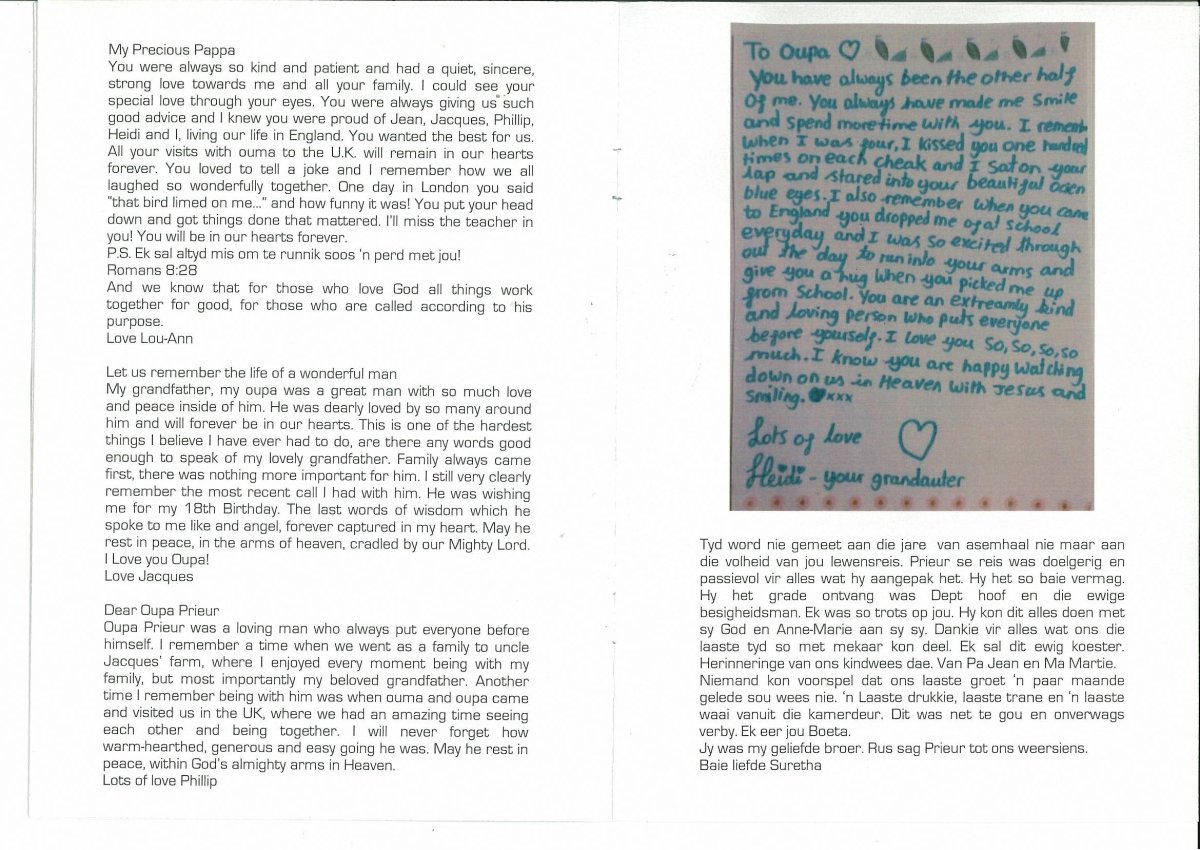 My Precious Pappa
You were always so kind and patient and had a quiet, sincere,
strong love towards me and all your family. I could see your
special love through your eyes. You were always giving us such
good advice and I knew you were proud of Jean, Jacques, Phillip,
Heidi and I, living our life in England. You wanted the best for us.
All your visits with ouma to the U.K. will remain in our hearts
forever. You loved to tell a joke and I remember how we all
laughed so wonderfully together. One day in London you said
"that bird limed on me..." and how funny it was! You put your head
down and got things done that mattered. I'll miss the teacher in
you! You will be in our hearts forever.
P.S. Ek sal altyd mis om te runnik soos 'n perd met jou!
Romans 8:28
And we know that for those who love God all things work
together for good, for those who are called according to his
purpose.
Love Lou-Ann
Let us remember the life of a wonderful man
My grandfather, my oupa was a great man with so much love
and peace inside of him. He was dearly loved by so many around
him and will forever be in our hearts. This is one of the hardest
things I believe I have ever had to do, are there any words good
enough to speak of my lovely grandfather. Family always came
first, there was nothing more important for him. I still very clearly
remember the most recent call I had with him. He was wishing
me for my 18th Birthday. The last words of wisdom which he
spoke to me like and angel, forever captured in my heart. May he
rest in peace, in the arms of heaven, cradled by our Mighty Lord.
I Love you Oupa!
Love Jacques
Dear Oupa Prieur
Oupa Prieur was a loving man who always put everyone before
himself. I remember a time when we went as a family to uncle
Jacques' farm, where I enjoyed every moment being with my
family, but most importantly my beloved grandfather. Another
time I remember being with him was when ouma and oupa came
and visited us in the UK, where we had an amazing time seeing
each other and being together. I will never forget how
warm-hearted, generous and easy going he was. May he rest in
peace, within God's almighty arms in Heaven.
Lots of love Phillip
To Oupa
You have always been the other half
Of me. You always have made me smile
and spend more time with you. I remember
when I was four, I kissed you one hundred
times on each cheak and I sat on your
lap and stared into your beautiful ocien
blue eyes. I also remember when you came
to England you dropped me of at school
everyday and I was so excited through
out the day to run into your arms and
give you a hug when you picked me up
from School. You are an extreamly kind
and loving person who puts everyone
before yourself. I love you so, so, so, so
much. I know you are happy watching
down on us in Heaven with Jesus and
smiling. xxx
Lots of love
Heidi - your grandauter
Tyd word nie gemeet aan die jare van asemhaal nie maar aan
die volheid van jou lewensreis. Prieur se reis was doelgerig en
passievol vir alles wat hy aangepak het. Hy het so baie vermag.
Hy het grade ontvang was Dept hoof en die ewige
besigheidsman. Ek was so trots op jou. Hy kon dit alles doen met
sy God en Anne-Marie aan sy sy. Dankie vir alles wat ons die
laaste tyd so met mekaar kon deel. Ek sal dit ewig koester.
Herinneringe van ons kindwees dae. Van Pa Jean en Ma Martie.
Niemand kon voorspel dat ons laaste groet 'n paar maande
gelede sou wees nie. 'n Laaste drukkie, laaste trane en 'n laaste
waai vanuit die kamerdeur. Dit was net te gou en onverwags
verby. Ek eer jou Boeta.
Jy was my geliefde broer. Rus sag Prieur tot ons weersiens.
Baie liefde Suretha